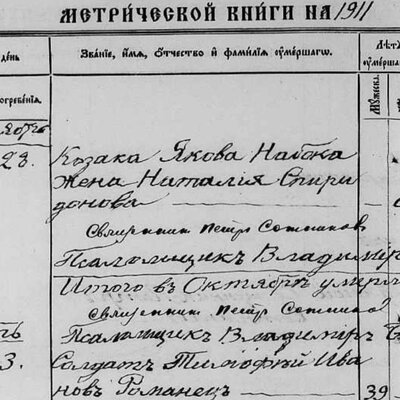 МЕТРИ́ЧЕСКОЙ КНИ́ГИ НА 1911
день
погребе́нія.
Зва́ніе, и́мя, о́тчество и҆ фами́лія ᲂу҆ме́ршагѡ.
Лѣ́т
ᲂу҆ме́рша
Му́жеска.
23.
Козака Якова
Жена Наталія Спири
донова
Священникъ Петръ Сотников
Псаломщикъ Владимір
Итого въ Октябрѣ умерл
Священникъ Петръ Сотников
Псаломщикъ Владиміръ
3.
Солдатъ Тимофѣй Ива
новъ Романец
39